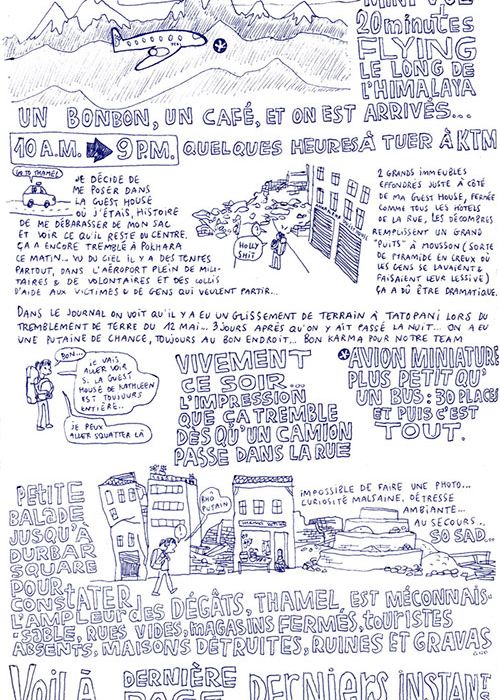 MINI VOL
20 minutes
FLYING
LE LONG DE
L'HIMALAYA
UN BONBON, UN CAFÉ, ET ON EST ARRIVÉS...
10 A.M. 9 P.M. QUELQUES HEURES À TUER À KTM
GO TO THAMEL
JE DÉCIDE DE
ME POSER DANS
LA GUEST HOUSE
OÙ J'ÉTAIS, HISTOIRE
DE ME DÉBARASSER DE MON SAC
ET VOIR CE QU'IL RESTE DU CENTRE.
ÇA A ENCORE TREMBLÉ À POKHARA
CE MATIN... VU DU CIEL IL Y A DES TENTES
PARTOUT, DANS L'AÉROPORT PLEIN DE MILI-
TAIRES & DE VOLONTAIRES ET DES COLIS
D'AIDE AUX VICTIMES & DE GENS QUI VEULENT PARTIR...
HOLLY
SHIT
2 GRANDS IMMEUBLES
EFFONDRÉS JUSTE À CÔTÉ
DE MA GUEST HOUSE, FERMÉE
COMME TOUS LES HÔTELS
DE LA RUE, LES DÉCOMBRES
REMPLISSENT UN GRAND
"PUITS" À MOUSSON (SORTE
DE PYRAMIDE EN CREUX OÙ
LES GENS SE LAVAIENT &
FAISAIENT LEUR LESSIVE)
ÇA A DÛ ÊTRE DRAMATIQUE.
DANS LE JOURNAL ON VOIT QU'IL Y A EU UN GLISSEMENT DE TERRAIN À TATOPANI LORS DU
TREMBLEMENT DE TERRE DU 12 MAI... 3 JOURS APRÈS QU'ON Y AIT PASSÉ LA NUIT... ON A EU
UNE PUTAINE DE CHANCE, TOUJOURS AU BON ENDROIT... BON KARMA POUR NOTRE TEAM
BON...
JE VAIS
ALLER VOIR
SI LA GUEST
HOUSE DE KATHLEEN
EST TOUJOURS
ENTIÈRE..
JE PEUX
ALLER SQUATTER LÀ
VIVEMENT
CE SOIR...
L'IMPRESSION
QUE ÇA TREMBLE
DÈS QU'UN CAMION
PASSE DANS LA RUE
AVION MINIATURE
PLUS PETIT QU'
UN BUS: 30 PLACES
ET PUIS C'EST
TOUT.
PETITE
BALADE
JUSQU'À
DURBAR
SQUARE
POUR
CONSTATER
L'AMPLEUR DES DÉGÂTS, THAMEL EST MÉCONNAIS-
SABLE, RUES VIDES, MAGASINS FERMÉS, TOURISTES
ABSENTS, MAISONS DÉTRUITES, RUINES ET GRAVAS
OHO
PUTAIN
IMPOSSIBLE DE FAIRE UNE PHOTO...
CURIOSITÉ MALSAINE, DÉTRESSE
AMBIANTE...
AU SECOURS..
SO SAD...
VOILÀ DERNIÈRE
PAGE DERNIERS INSTANT